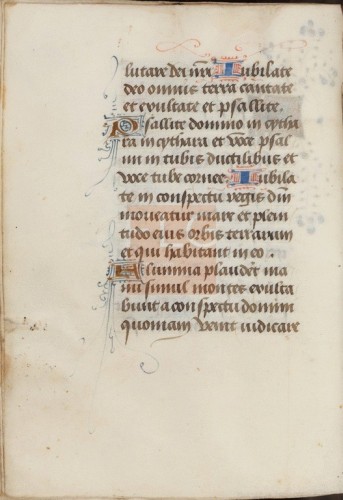 lutare dei nr̄i Iubilate
deo omnis terra cantate
et exultate et psallite.
Psallite domino in cytha
ra in cythara et voce psal
mi in tubis ductilibus et
voce tube cornee. Iubila
te in conspectu regis dn̄i
moveatur mare et pleni
tudo eius orbis terrarum
et qui habitant in eo.
Flumina plaudēt ma
nu simul montes exulta
bunt a conspectu domini
quoniam venit iudicare